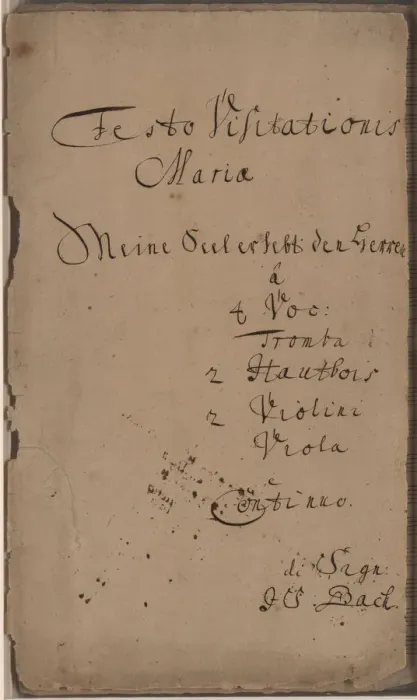 Festo Visitationis
Mariæ
Meine Seel erhebt den Herren
â
4 Voc:
Tromba
2 Hautbois
2 Violini
Viola
e
Continuo.
di Sign:
J S Bach.